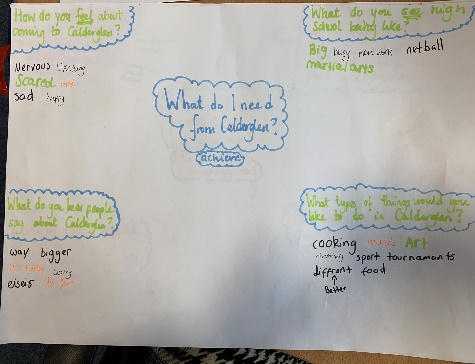 How do you feel about
coming to Calderglen?
Nervous
Scared
sad
What do you see high
school being like?
Big busy more work netball
martial arts
What do I need
from Calderglen?
achieve
What do you hear people
say about Calderglen?
way bigger
What types of things would you
like to do in Calderglen?
cooking Art
sport tournamants
diffrent food
Better